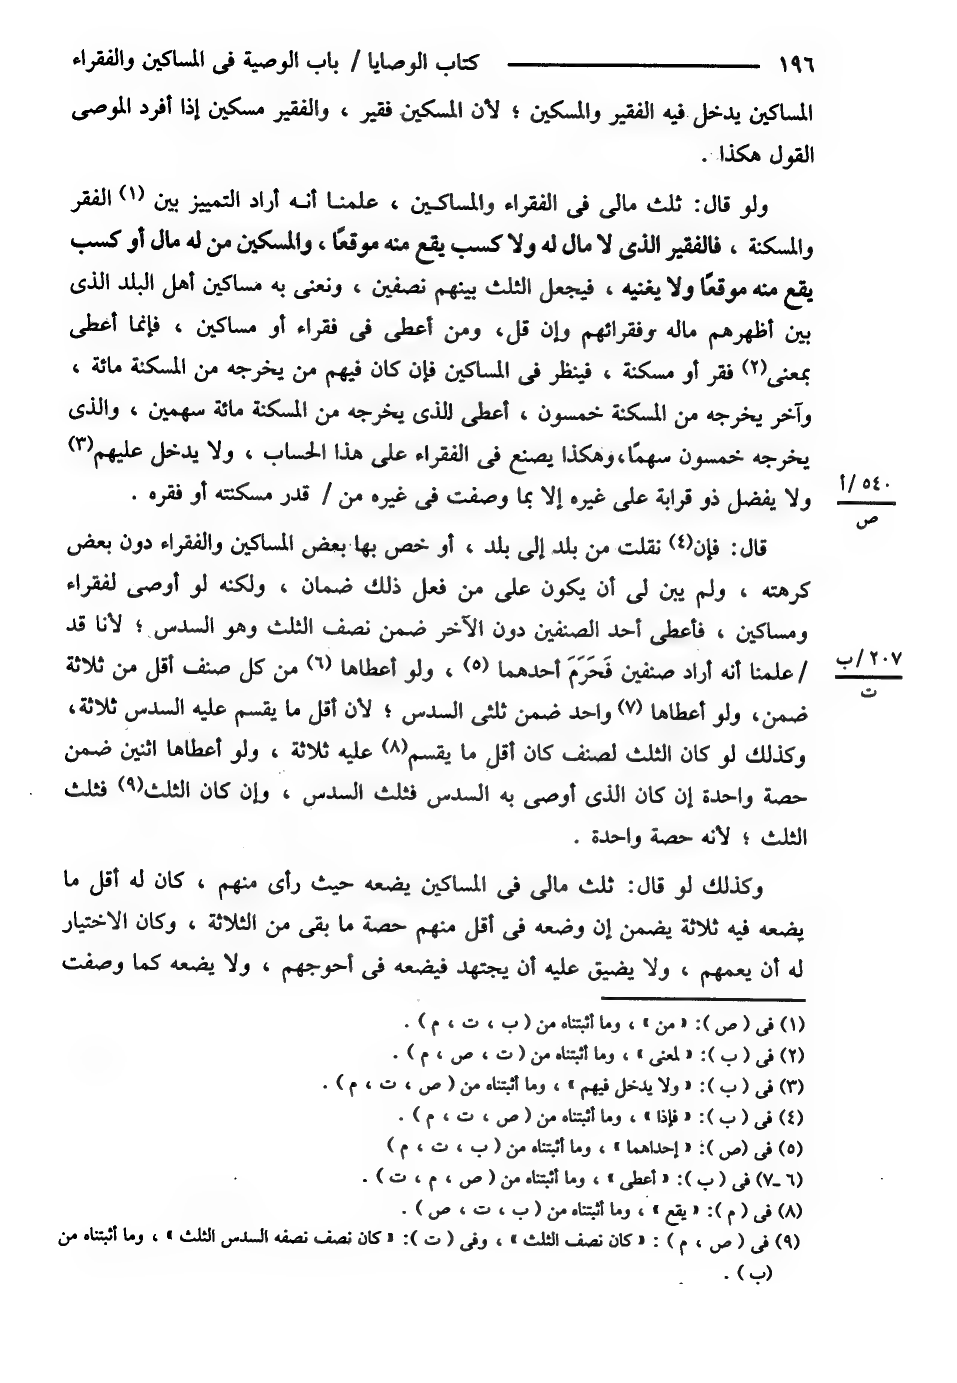 ١٩٦ كتاب الوصايا / باب الوصية فى المساكين والفقراء
المساكين يدخل فيه الفقير والمسكين ؛ لأن المسكين فقير ، والفقير مسكين إذا أفرد الموصى
القول هكذا .
ولو قال: ثلث مالى فى الفقراء والمساكين ، علمنا أنه أراد التمييز بين (١) الفقر
والمسكنة ، فالفقير الذى لا مال له ولا كسب يقع منه موقعًا ، والمسكين من له مال أو كسب
يقع منه موقعًا ولا يغنيه ، فيجعل الثلث بينهم نصفين ، ونعنى به مساكين أهل البلد الذى
بين أظهرهم ماله وفقرائهم وإن قل، ومن أعطى فى فقراء أو مساكين ، فإنما أعطى
بمعنى(٢) فقر أو مسكنة ، فينظر فى المساكين فإن كان فيهم من يخرجه من المسكنة مائة ،
وآخر يخرجه من المسكنة خمسون ، أعطى للذى يخرجه من المسكنة مائة سهمين ، والذى
يخرجه خمسون سهمًا،وهكذا يصنع فى الفقراء على هذا الحساب ، ولا يدخل عليهم(٣)
ولا يفضل ذو قرابة على غيره إلا بما وصفت فى غيره من / قدر مسكنته أو فقره .
٥٤٠/أ
ص
قال: فإن(٤) نقلت من بلد إلى بلد ، أو خص بها بعض المساكين والفقراء دون بعض
كرهته ، ولم يبن لى أن يكون على من فعل ذلك ضمان ، ولكنه لو أوصى لفقراء
ومساكين ، فأعطى أحد الصنفين دون الآخر ضمن نصف الثلث وهو السدس ؛ لأنا قد
/ علمنا أنه أراد صنفين فَحَرَمَ أحدهما (٥) ، ولو أعطاها (٦) من كل صنف أقل من ثلاثة
٢٠٧/ب
ت
ضمن، ولو أعطاها (٧) واحد ضمن ثلثى السدس ؛ لأن أقل ما يقسم عليه السدس ثلاثة،
وكذلك لو كان الثلث لصنف كان أقل ما يقسم(٨) عليه ثلاثة ، ولو أعطاها اثنين ضمن
حصة واحدة إن كان الذى أوصى به السدس فثلث السدس ، وإن كان الثلث(٩) فثلث
الثلث ؛ لأنه حصة واحدة .
وكذلك لو قال: ثلث مالى فى المساكين يضعه حيث رأى منهم ، كان له أقل ما
يضعه فيه ثلاثة يضمن إن وضعه فى أقل منهم حصة ما بقى من الثلاثة ، وكان الاختيار
له أن يعمهم ، ولا يضيق عليه أن يجتهد فيضعه فى أحوجهم ، ولا يضعه كما وصفت
(١) فى ( ص ): « من » ، وما أثبتناه من ( ب ، ت ، م ) .
(٢) فى ( ب ): « لمعنى » ، وما أثبتناه من ( ت ، ص ، م ) .
(٣) فى ( ب ): « ولا يدخل فيهم » ، وما أثبتناه من ( ص ، ت ، م ) .
(٤) فى ( ب ): « فإذا » ، وما أثبتناه من ( ص ، ت ، م ) .
(٥) فى (ص ): « إحداهما » ، وما أثبتناه من ( ب ، ت ، م )
(٦ ـ٧) فى ( ب ): « أعطى » ، وما أثبتناه من ( ص ، م ، ت ) .
(٨) فى ( م ): « يقع » ، وما أثبتناه من ( ب ، ت ، ص ) .
(٩) فى ( ص ، م ) : « كان نصف الثلث » ، وفى ( ت ): « كان نصف نصفه السدس الثلث » ، وما أثبتناه من
(ب ) .